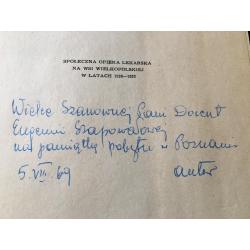 SPOŁECZNA OPIEKA LEKARSKA
NA WSI WIELKOPOLSKIEJ
W LATACH
Wielce Szanownej Pani Docent
Eugenii Szapowałowej
na pamiątkę pobytu w Poznaniu
5. VIII. 69 autor